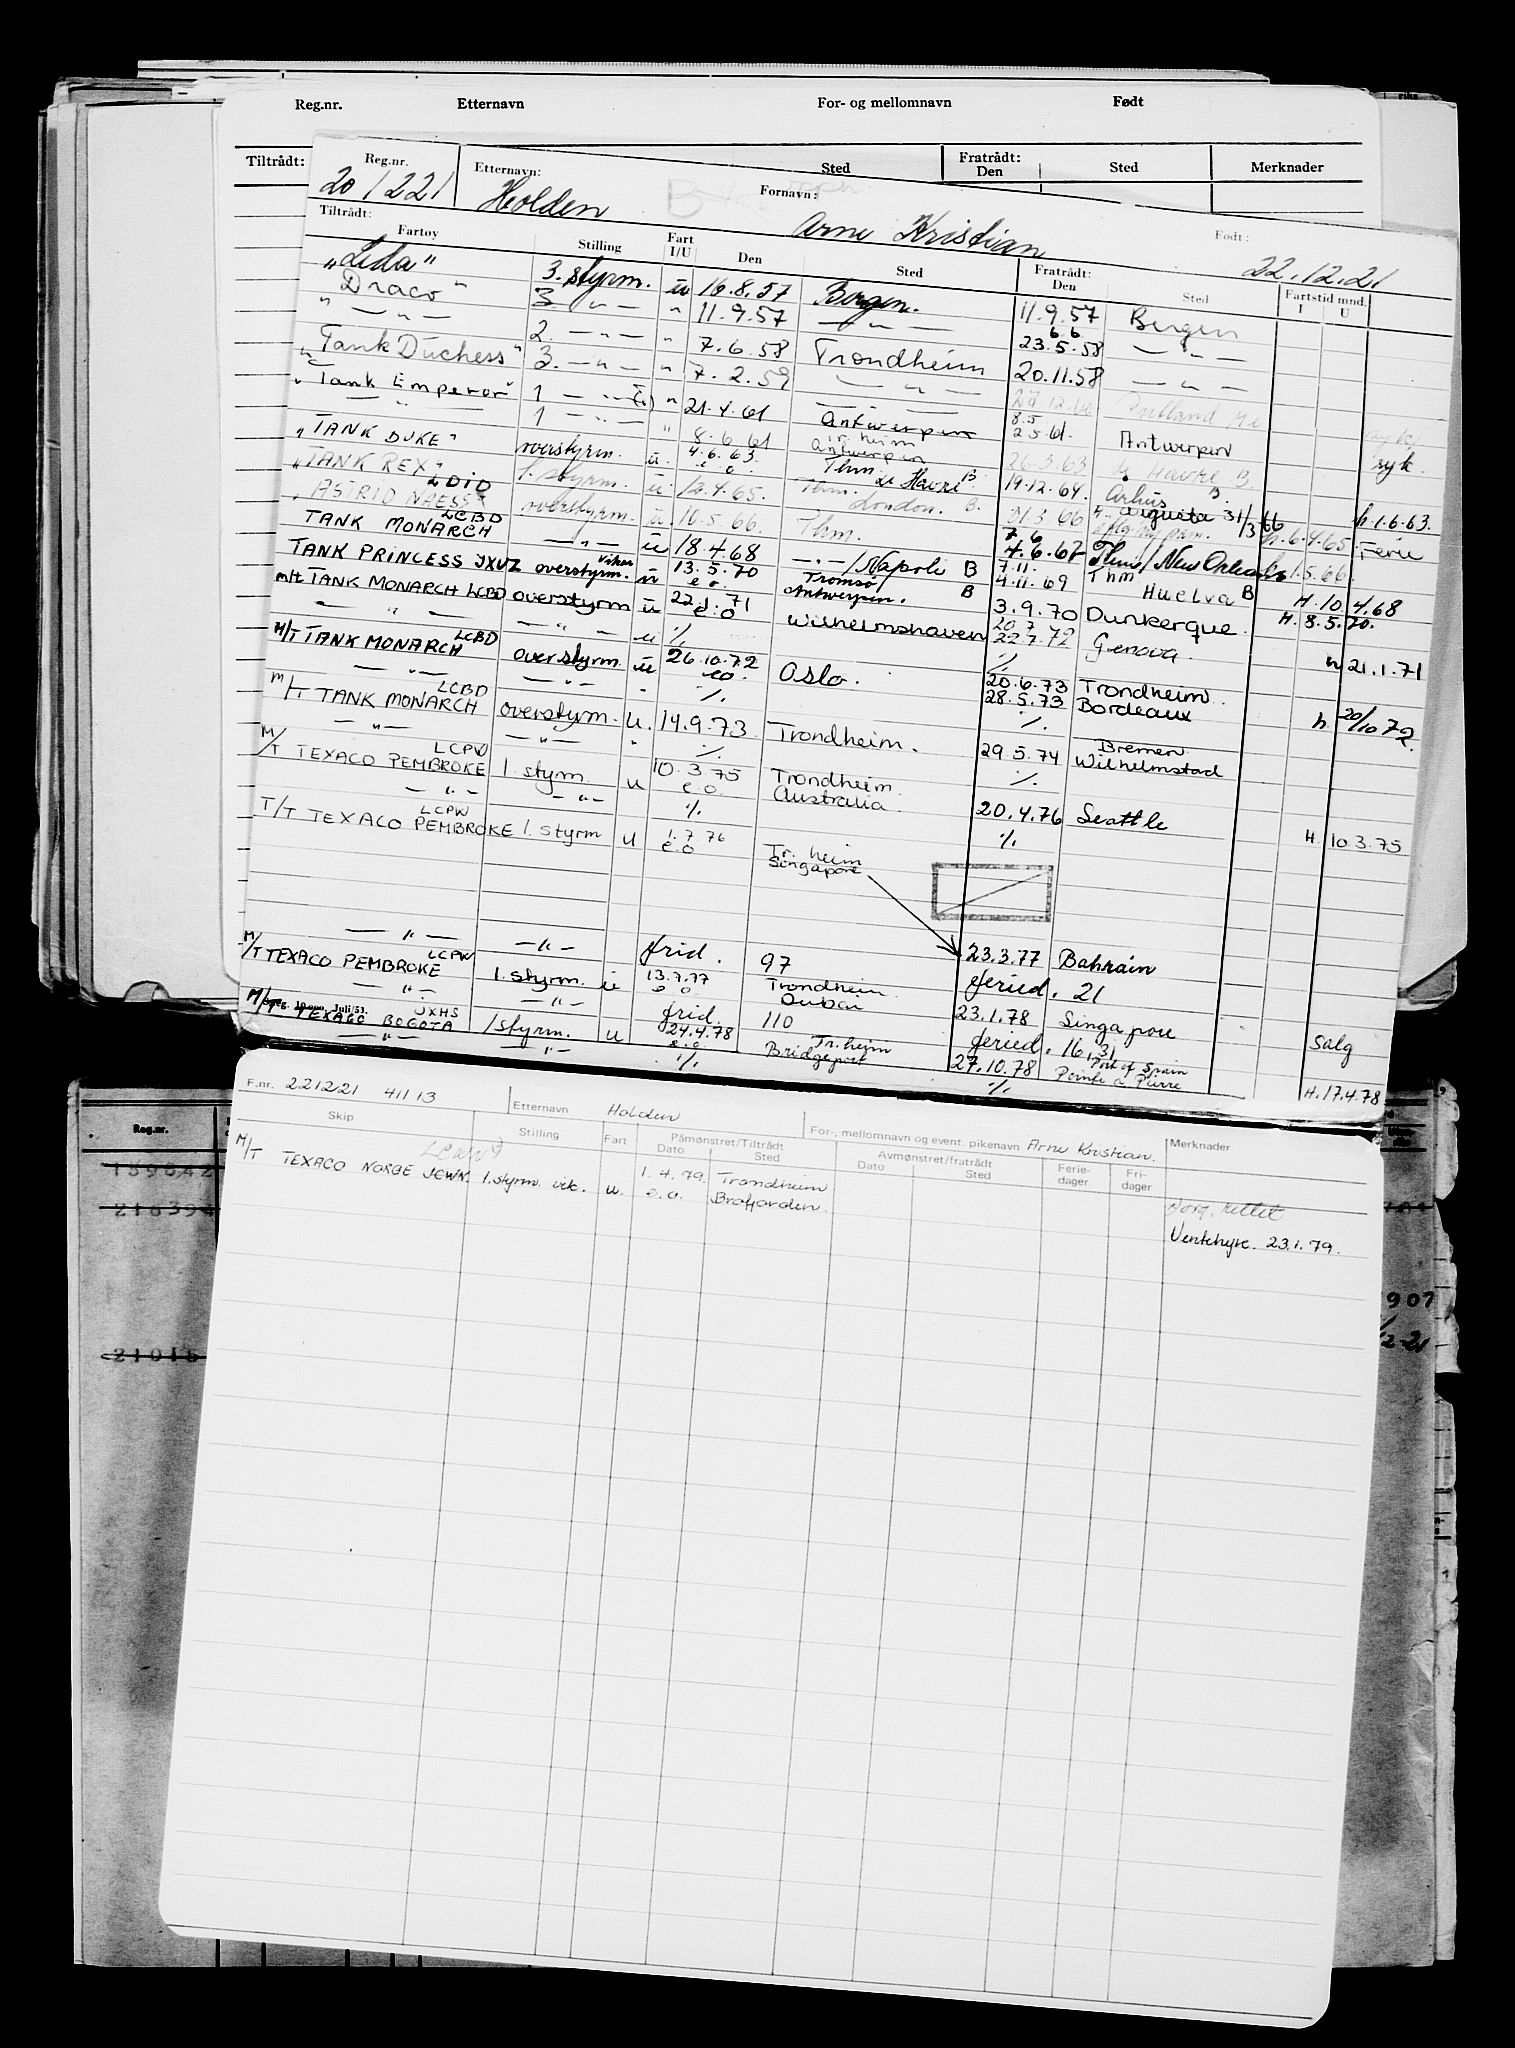 Reg.nr. Etternavn For- og mellomnavn Født
Tiltrådt: Sted Fratrådt: Den Sted Merknader
Reg.nr. 20/221 Etternavn: Holden Fornavn: Arne Kristian Født: 22.12.21
Tiltrådt:
Fartøy Stilling Fart I/U Den Sted Fratrådt: Den Sted Fartstid mnd. I U
"Leda" 3. styrm. u 16.8.57 Bergen. 11.9.57 Bergen
"Draco" 3. — " — " 11.9.57 — " — 6.6 23.5.58 — " —
— " — 2. — " — " 7.6.58 Trondheim 20.11.58 — " —
"Tank Duchess" 3. — " — " 7.2.59 — " — Portland Me
"Tank Emperor" 1 — " — " 21.4.61 Antwerpen 8.5 2.5.61. Antwerpen syk.
— " — 1 — " — " 8.6.61 Tr.heim Antwerpen 26.3.63 Le Havre B.
"TANK DUKE" overstyrm. u. 4.6.63. e.o. Thm. Le Havre B 19.12.64. Arhus B. h.1.6.63.
"TANK REX" LDID 1. styrm. u. 12.4.65. Thm. London. B. 31.3.66 Augusta 31/3 66 h.6.4.65. Ferie
"ASTRID NAESS" overstyrm. u 10.5.66. Thm. 7.6 4.6.67 Thm/New Orleans h.1.5.66.
TANK MONARCH LCBD — " — u 18.4.68 — " —/Napoli B 7.11. 4.11.69 Thm Huelva B H.10.4.68
TANK PRINCESS JXUZ overstyrm. vikar u 13.5.70 e.o. Tromsø/Antwerpen. B 3.9.70 Dunkerque. H.8.5.70.
M/T TANK MONARCH LCBD overstyrm u 22.1.71 e.o Wilhelmshaven 20.7 22.7.72 Genova. h 21.1.71
— " — — " — u % %
M/T TANK MONARCH LCBD overstyrm. u 26.10.72 e.o. Oslo. 20.6.73 Trondheim. 28.5.73 Bordeaux h 20/10 72.
— " — — " — " % %
M/T TANK MONARCH LCBD overstyrm. u. 14.9.73. Trondheim. 29.5.74 Bremen Wilhelmstad
— " — — " — " % %
M/T TEXACO PEMBROKE LCPW 1. styrm. u 10.3.75 e.o. Trondheim. Australia. 20.4.76 Seattle H. 10.3.75
— " — — " — % %
T/T TEXACO PEMBROKE LCPW 1. styrm u 1.7.76 e.o Tr.heim Singapore
— " — — " — frid. 97 23.3.77 Bahrain
feried. 21
M/T TEXACO PEMBROKE LCPW 1. styrm. u 13.7.77 e.o. Trondheim. Dubai 23.1.78 Singapore salg
— " — — " — frid. 110 feried. 16, 31
M/T TEXACO BOGOTA JXHS 1 styrm. u 24.4.78 e.o Tr.heim Bridgeport 27.10.78 Port of Spain Pointe a Pierre H.17.4.78
— " — — " — % %
Juli/53.
F.nr. 221221 41113 Etternavn Holden For-, mellomnavn og event. pikenavn Arne Kristian. Merknader
Skip Stilling Fart Påmønstret/Tiltrådt Dato Sted Avmønstret/fratrådt Dato Sted Ferie- dager Fri- dager
M/T TEXACO NORGE JCWN 1. styrm. vik. u. 1.4.79. e.o. Trondheim Brofjorden.
Ventehyre. 23.1.79.
Reg.nr.
159642
216394
21015
907
12-21